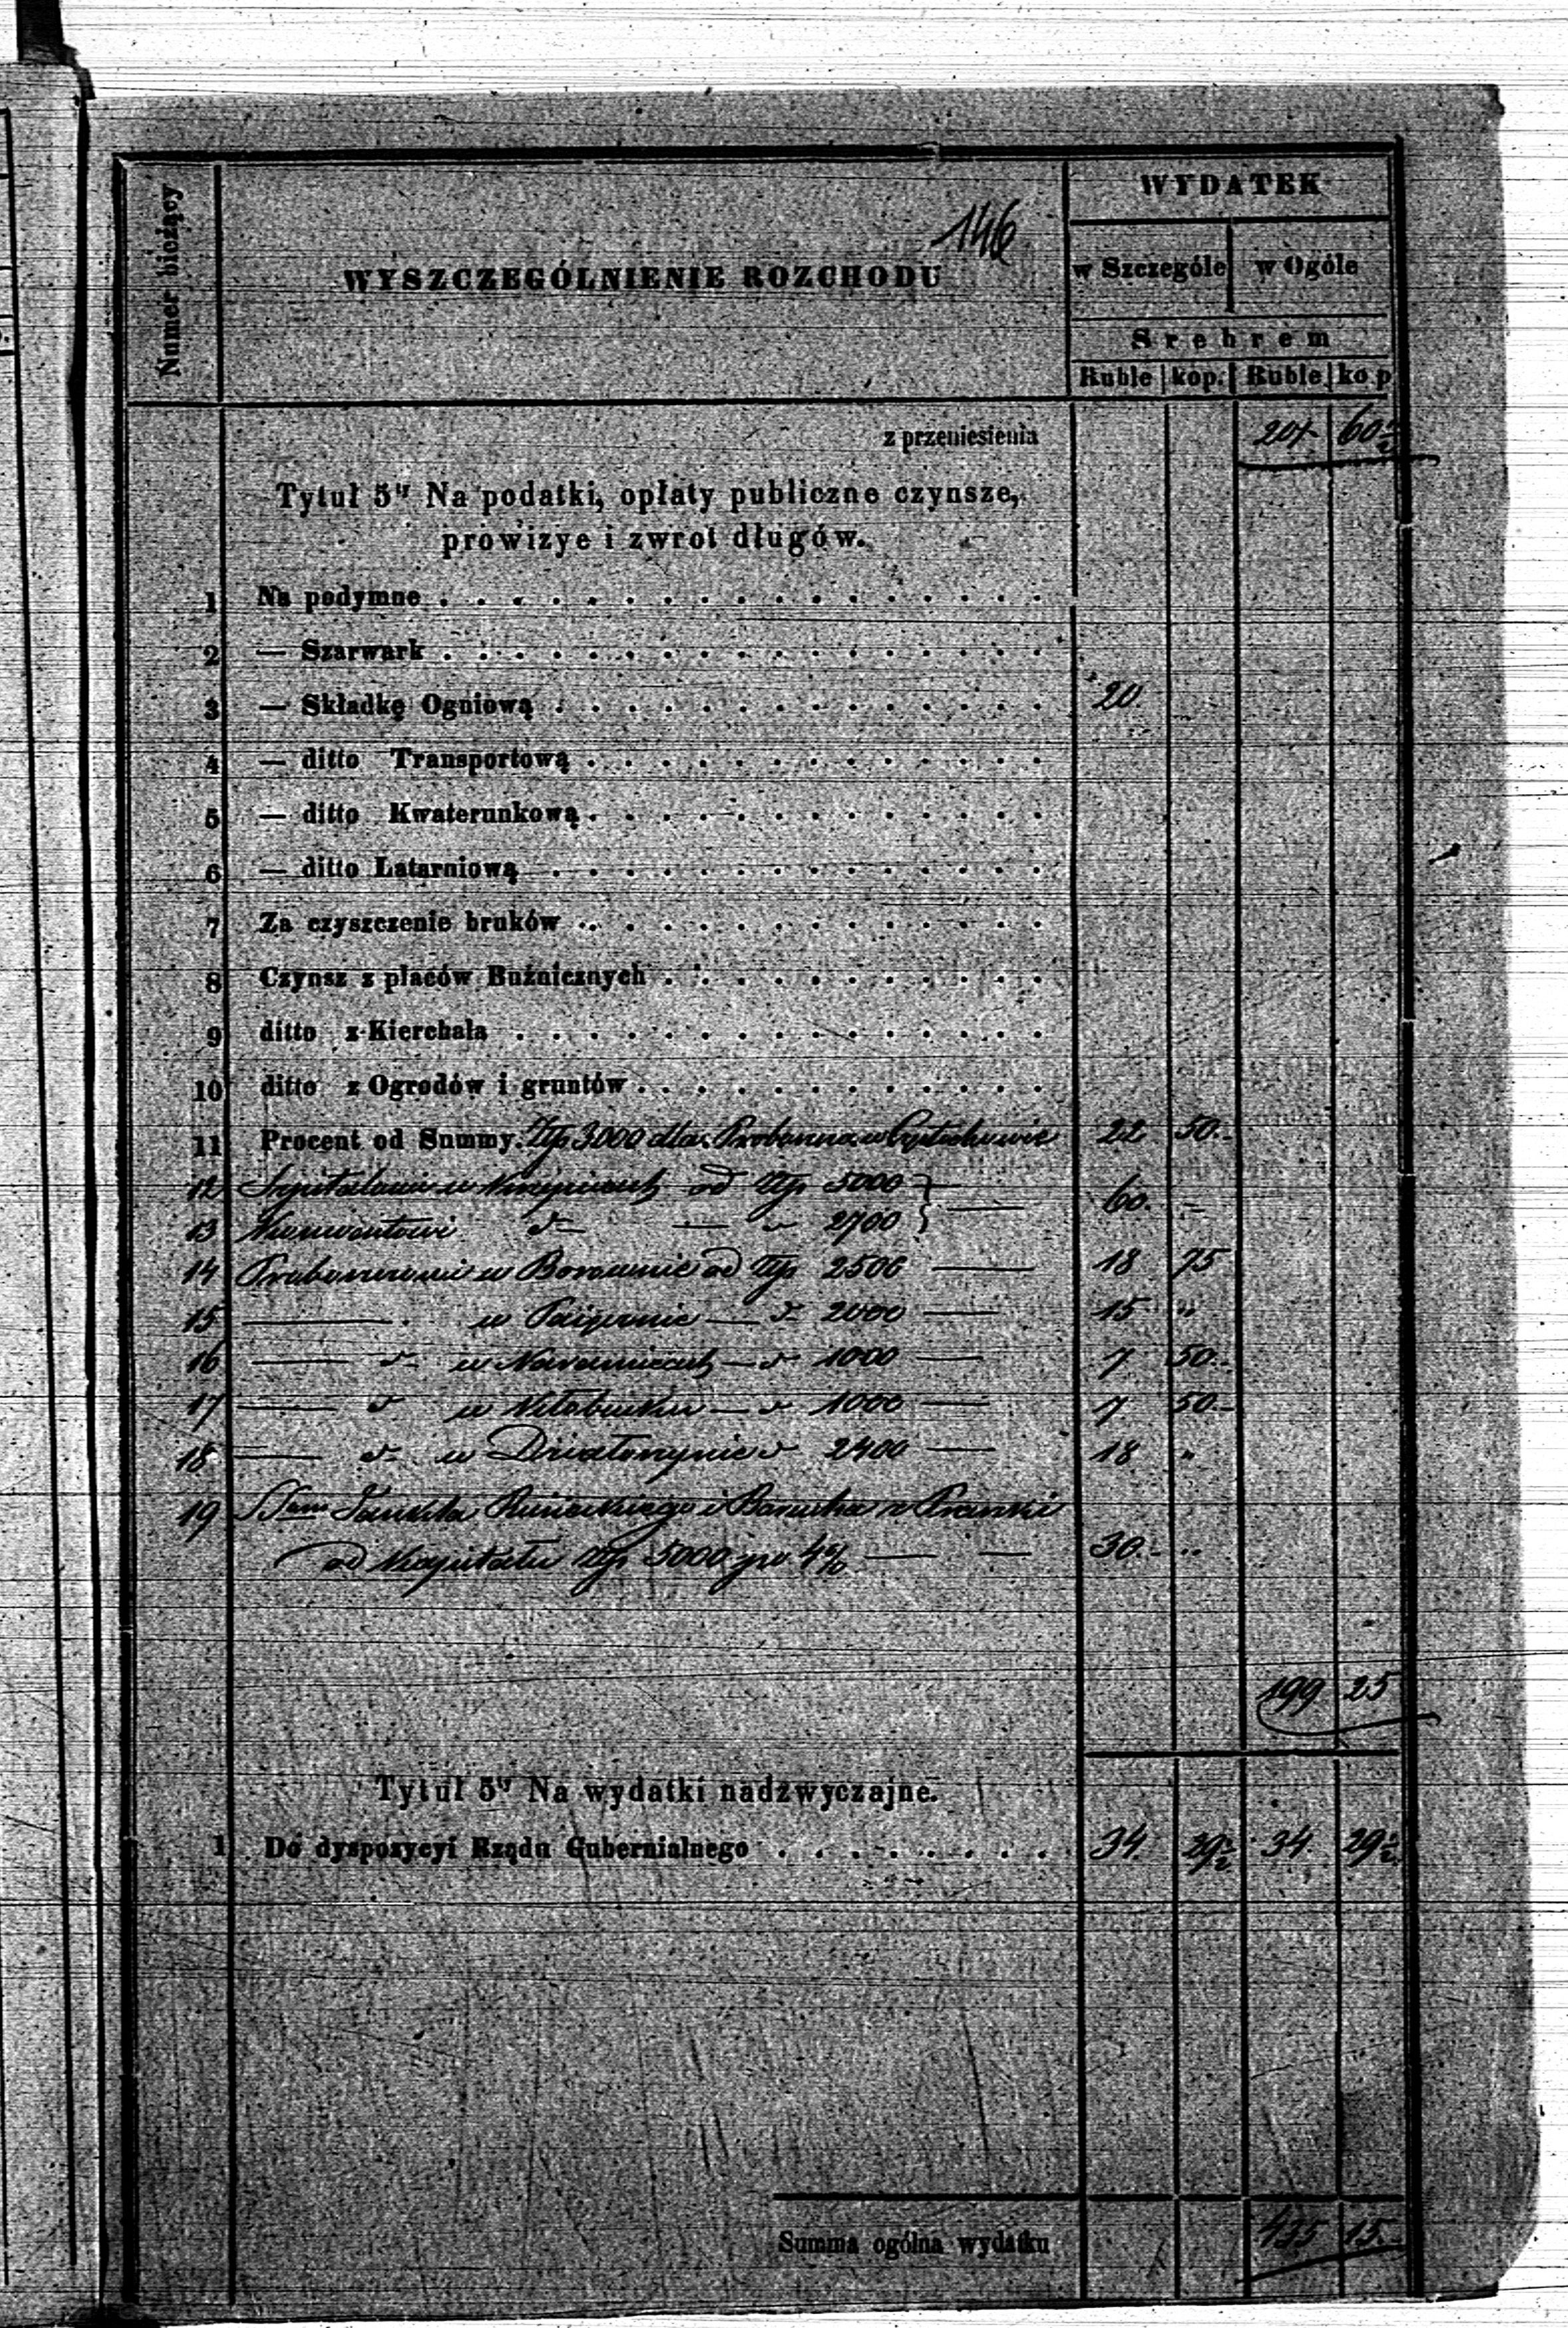 Numer bieżący
WYSZCZEGÓLNIENIE ROZCHODU
146
WYDATEK
w Szczególe w Ogóle
Srebrem
Ruble kop. Ruble kop
z przeniesienia 201 60½
Tytuł 5ty Na podatki, opłaty publiczne czynsze,
prowizye i zwrot długów.
1 Na podymne
2 — Szarwark
3 — Składkę Ogniową 20.
4 — ditto Transportową
5 — ditto Kwaterunkową
6 — ditto Latarniową
7 Za czyszczenie bruków
8 Czynsz z placów Buźnicznych
9 ditto z Kierchala
10 ditto z Ogrodów i gruntów
11 Procent od Summy Złp 3000 dla w 22 50.-
12 Szpitalowi w Krzepicach od Złp 5000 } —
13 Konwentowi d— — „ 2700 } — 60. —
14 Proboszczowi w Borownie od Złp 2500 — 18 75
15 — w — d- 2000 — 15 "
16 — d- w — d 1000 — 7 50.-
17 — d w Kłobucku — d 1000 — 7 50.-
18 — d- w Działoszynie d 2400 — 18 "
19 i z
od Kapitału Złp 5000 po 4% — — 30.- "
199 25
Tytuł 5ty Na wydatki nadzwyczajne.
1 Do dyspozycyi Rządu Gubernialnego 34. 29½ 34. 29½
Summa ogólna wydatku 435 15.-